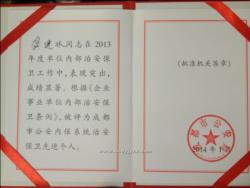 建林同志在2013
年度单位内部治安保
卫工作中,表现突出,
成绩显著。根据《企业
事业单位内部治安保
卫条例》,被评为成
都市公安内保系统治安
保卫先进个人。
(批准机关签章)
成都市公安
2014年1月